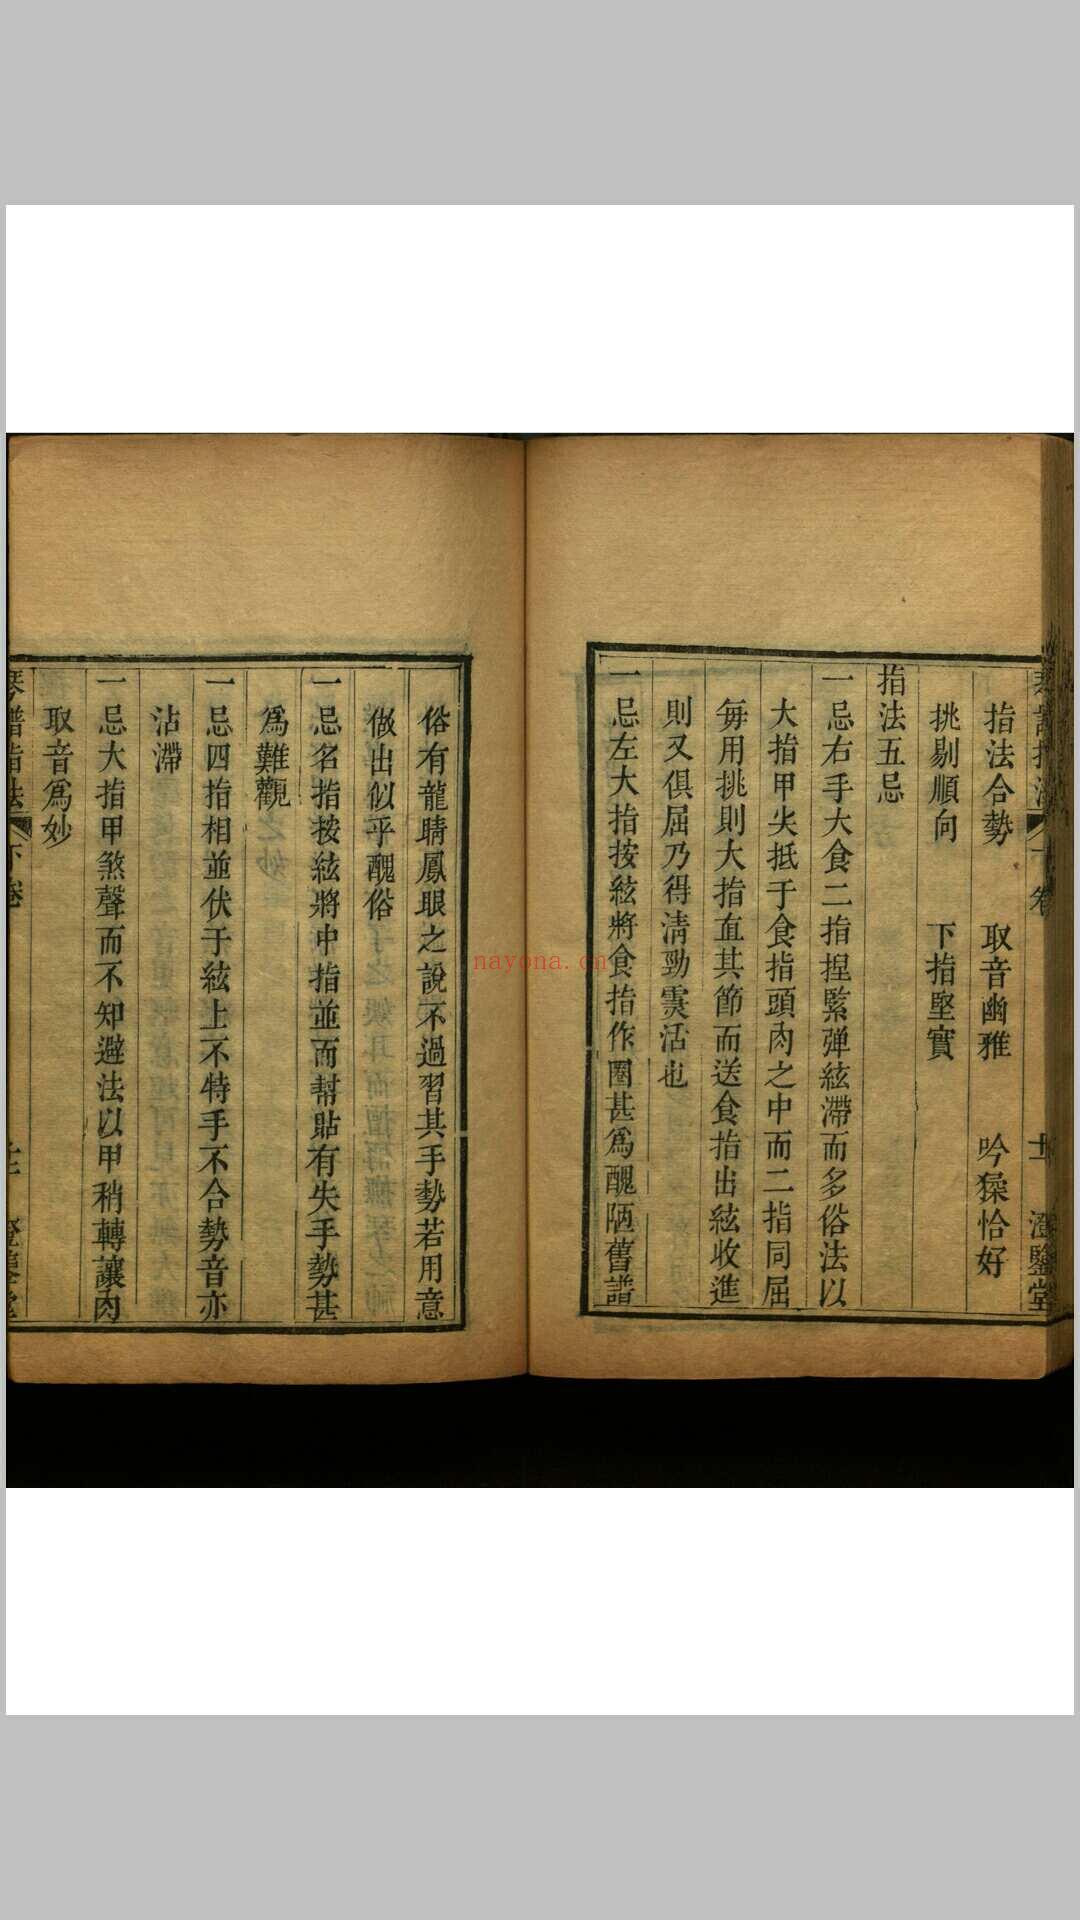 琴譜指法 下卷 十 澄鑒堂
指法合勢 取音幽雅 吟猱恰好
挑剔順向 下指堅實
指法五忌
一忌右手大食二指捏緊弹絃滯而多俗法以
大指甲尖抵于食指頭肉之中而二指同屈
毎用挑則大指直其節而送食指出絃收進
則又俱屈乃得清勁霛活也
一忌左大指按絃將食指作圈甚爲醜陋舊譜
nayona.cn
俗有龍睛鳳眼之說不過習其手勢若用意
做出似乎醜俗
一忌名指按絃將中指並而幇貼有失手勢甚
爲難觀
一忌四指相並伏于絃上不特手不合勢音亦
沾滯
一忌大指甲煞聲而不知避法以甲稍轉讓肉
取音爲妙
琴譜指法 下卷